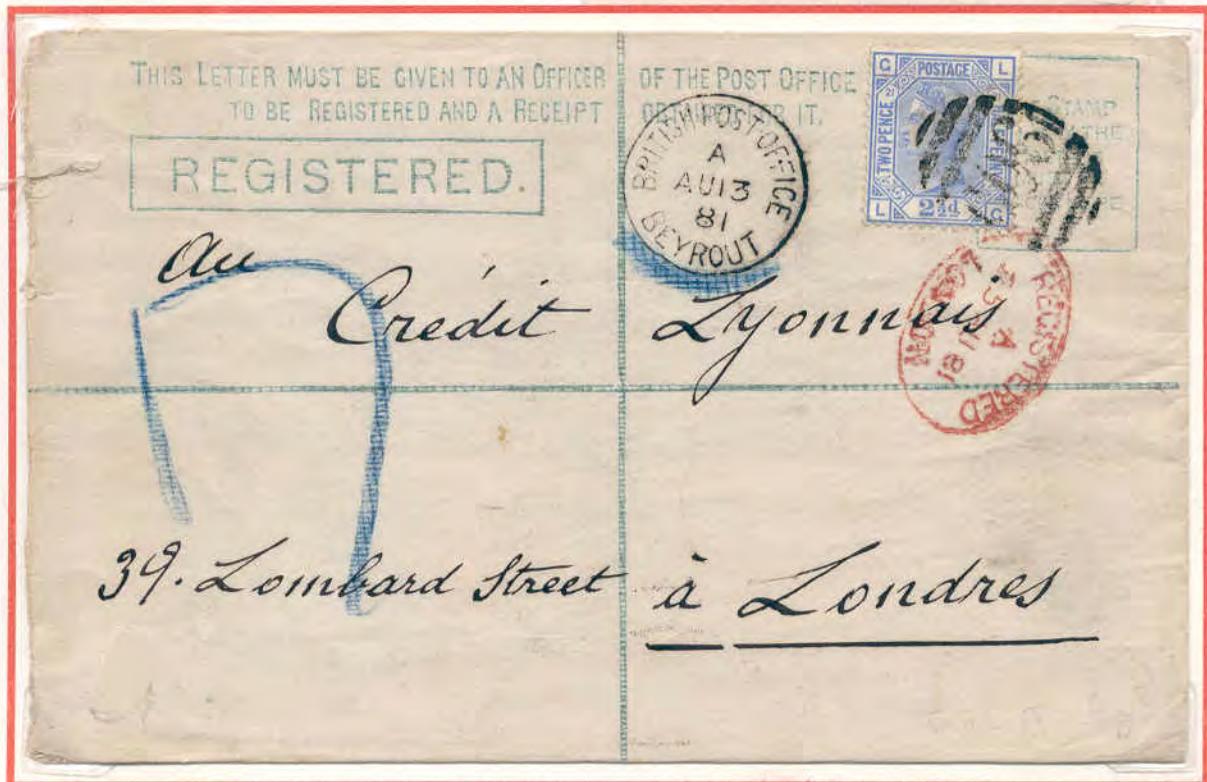 THIS LETTER MUST BE GIVEN TO AN OFFICER OF THE POST OFFICE
TO BE REGISTERED AND A RECEIPT OBTAINED FOR IT.
REGISTERED.
BRITISH POST OFFICE
A
AU 13
81
BEYROUT
G POSTAGE L
TWO PENCE
21
L 2½d G
STAMP
THE
REGISTERED
LONDON
A
81
Au
Crédit Lyonnais
39. Lombard Street à Londres